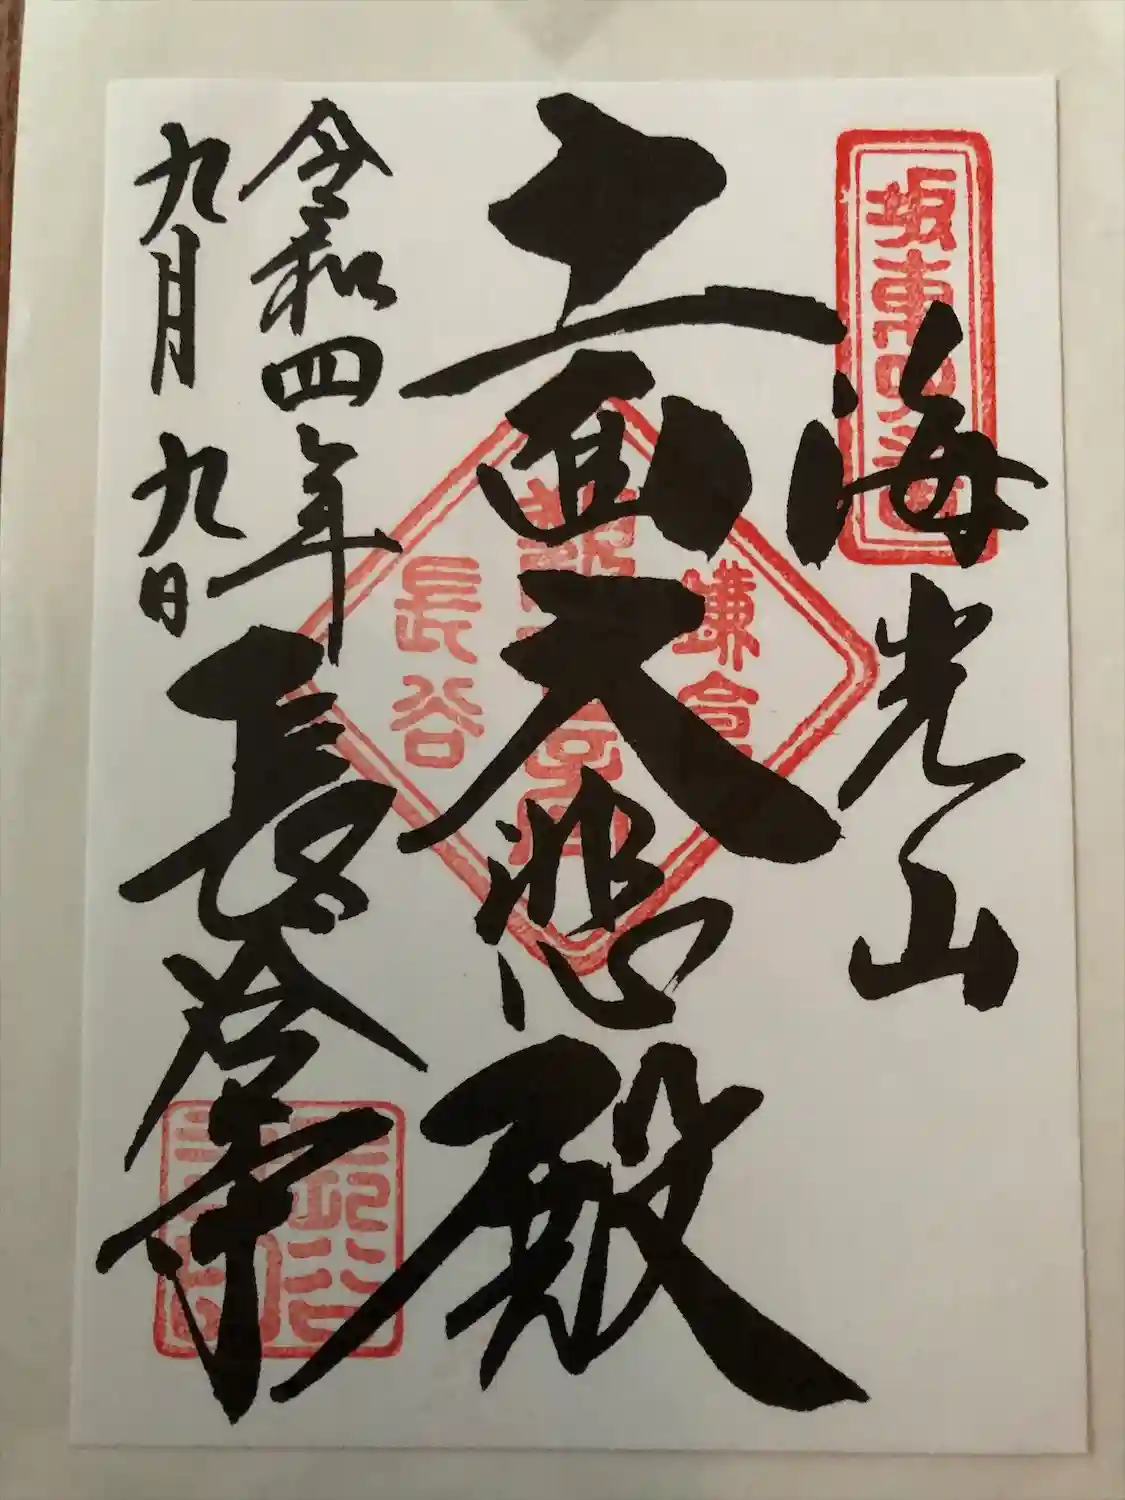 海光山
十一面大悲殿
令和四年
九月九日
長谷寺
坂東四番
鎌倉
長谷